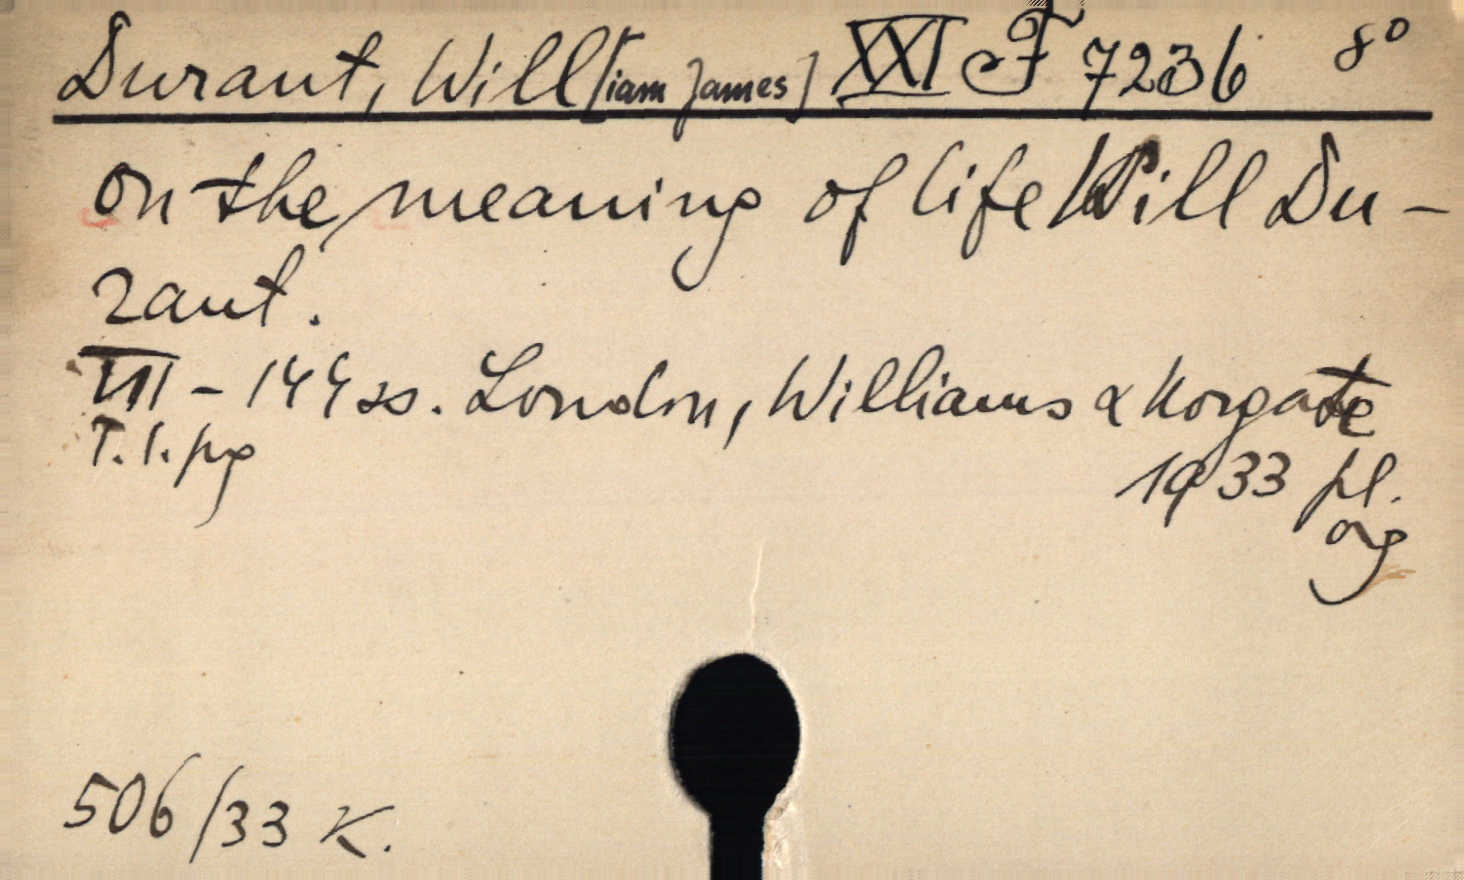 Durant, Will[iam James] XXI F 7236 8°
On the meaning of life Will Du-
rant.
VII - 144 ss. London, Williams & Norgate
T. l. pg 1933 pl.
org
506/33 K.